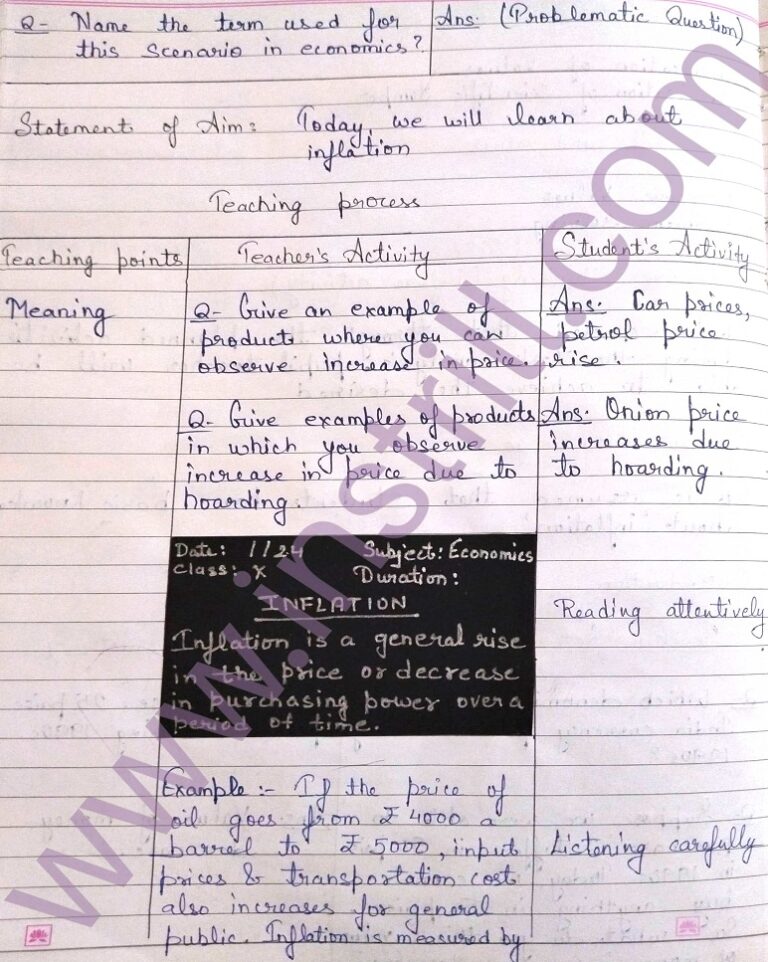 Q- Name the term used for
this scenario in economics?
Ans. (Problematic Question)
Statement of Aim: Today, we will learn about
inflation
Teaching process
Teaching points
Teacher's Activity
Student's Activity
Meaning
Q- Give an example of
product where you can
observe increase in price.
Ans. Car prices,
petrol price
rise.
Q- Give examples of products
in which you observe
increase in price due to
hoarding.
Ans. Onion price
increases due
to hoarding.
Date: 1/24 Subject: Economics
Class: X Duration:
INFLATION
Inflation is a general rise
in the price or decrease
in purchasing power over a
period of time.
Reading attentively
Example :- If the price of
oil goes from ₹ 4000 a
barrel to ₹ 5000, input
prices & transportation cost
also increases for general
public. Inflation is measured by
Listening carefully
www.instrill.com